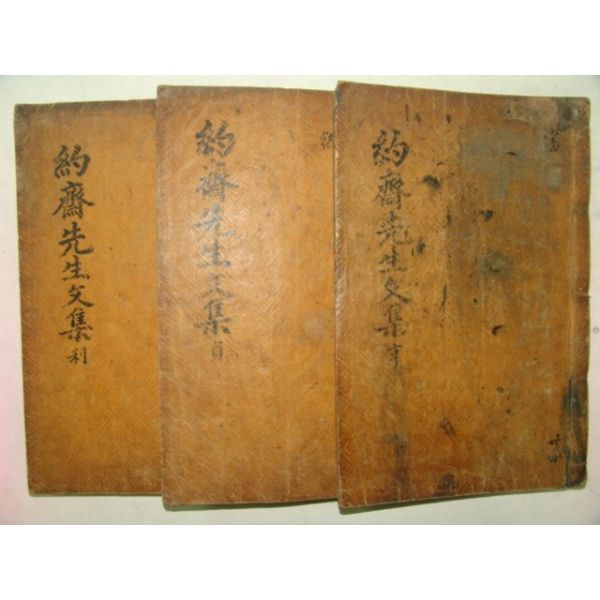 約齋先生文集 利
約齋先生文集 貞
約齋先生文集 亨